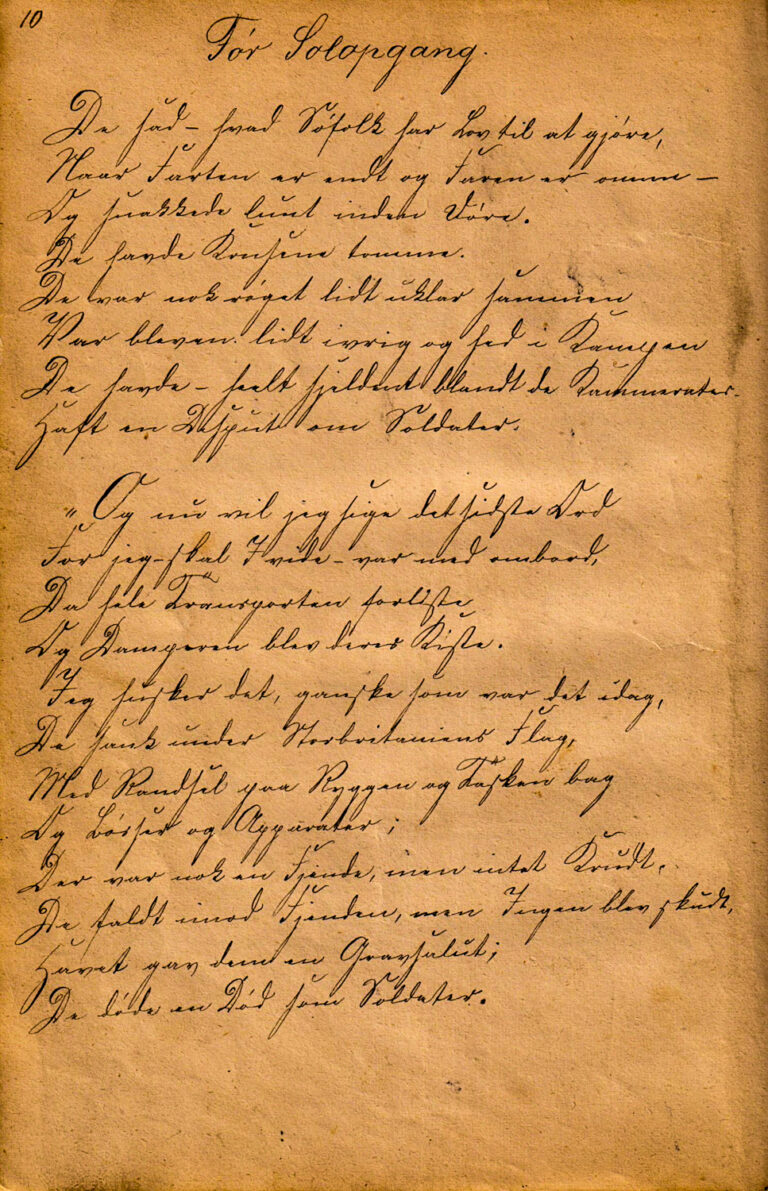 10
Før Solopgang.
De sad – hvad Søfolk har Lov til at gjøre,
Naar Farten er endt og Faren er omme –
Og snakkede lunt inden Døre.
De havde Krusene tomme.
De var nok røget lidt uklar sammen
Var bleven lidt ivrig og hed i Kampen
De havde – heelt sjeldent blandt de Kammerater –
Haft en Disput om Soldater.
"Og nu vil jeg sige det sidste Ord
For jeg – skal I vide – var med ombord,
Da hele Transporten forliste
Og Damperen blev deres Kiste.
Jeg husker det, ganske som var det idag,
De sank under Storbritaniens Flag,
Med Randsel paa Ryggen og Tasken bag
Og Bøsser og Apparater;
Der var nok en Fjende, men intet Krudt,
De faldt imod Fjenden, men Ingen blev skudt,
Havet gav dem en Gravsalut;
De døde en Død som Soldater.